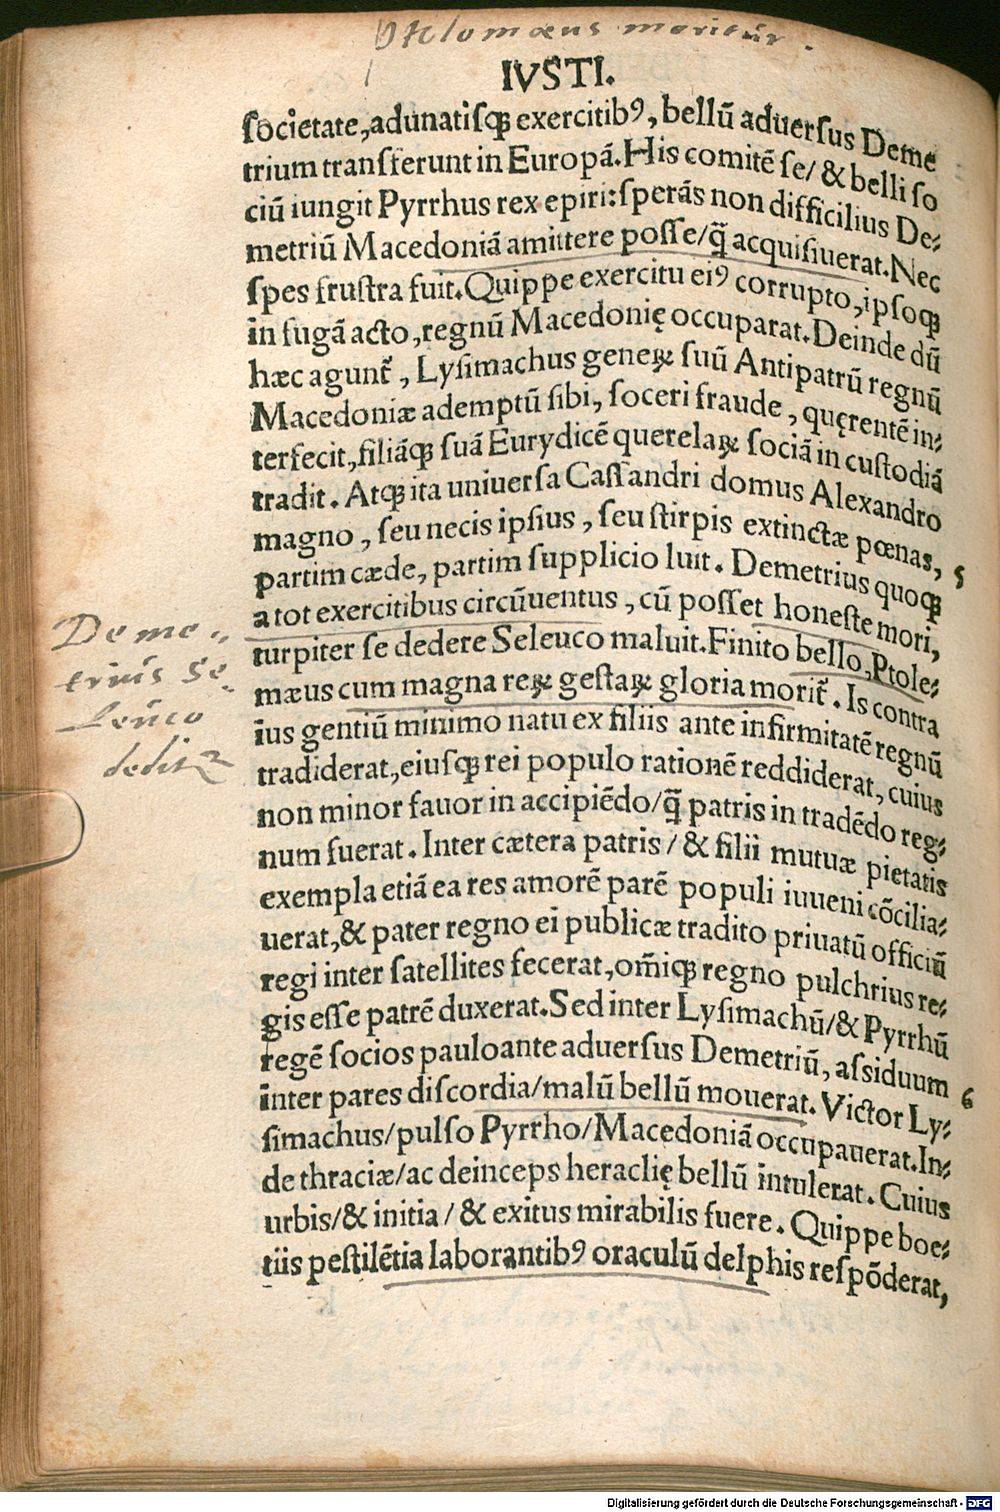 Ptolomæus moritur.
IVSTI.
ſocietate,adunatiſqꝫ exercitibꝰ, bellū aduerſus Deme
trium tranſferunt in Europā.His comitē ſe/ & belli ſo
ciū iungit Pyrrhus rex epiri:ſperās non difficilius De⸗
metriū Macedoniā amittere poſſe/q̄ acquiſiuerat.Nec
ſpes fruſtra fuit.Quippe exercitu eiꝰ corrupto,ipſoqꝫ
in fugā acto,regnū Macedonię occuparat.Deinde dū
hæc agunt̄ , Lyſimachus geneꝝ ſuū Antipatrū regnū
Macedoniæ ademptū ſibi, ſoceri fraude , quęrentē in⸗
terfecit,filiāqꝫ ſuā Eurydicē querelaꝝ ſociā in cuſtodiā
tradit. Atqꝫ ita uniuerſa Caſſandri domus Alexandro
magno , ſeu necis ipſius , ſeu ſtirpis extinctæ pœnas, 5
partim cæde, partim ſupplicio luit. Demetrius quoqꝫ
a tot exercitibus circūuentus , cū poſſet honeſte mori,
turpiter ſe dedere Seleuco maluit.Finito bello,Ptole⸗
mæus cum magna reꝝ geſtaꝝ gloria morit̄ . Is contra
ius gentiū minimo natu ex filiis ante infirmitatē regnū
tradiderat,eiuſqꝫ rei populo rationē reddiderat, cuius
non minor fauor in accipiēdo/q̄ patris in tradēdo reg⸗
num fuerat. Inter cætera patris / & filii mutuæ pietatis
exempla etiā ea res amorē parē populi iuueni cōcilia⸗
uerat,& pater regno ei publicæ tradito priuatū officiū
regi inter ſatellites fecerat,om̄iqꝫ regno pulchrius re⸗
gis eſſe patrē duxerat.Sed inter Lyſimachū/& Pyrrhū
regē ſocios pauloante aduerſus Demetriū, aſsiduum
inter pares diſcordia/malū bellū mouerat. Victor Ly⸗ 6
ſimachus/pulſo Pyrrho/Macedoniā occupauerat.In⸗
de thraciæ/ac deinceps heraclię bellū intulerat. Cuius
urbis/& initia / & exitus mirabilis fuere. Quippe boe⸗
tiis peſtilētia laborantibꝰ oraculū delphis reſpōderat,
Deme⸗
trius Se⸗
leuco
deditꝛ
Digitalisierung gefördert durch die Deutsche Forschungsgemeinschaft - DFG